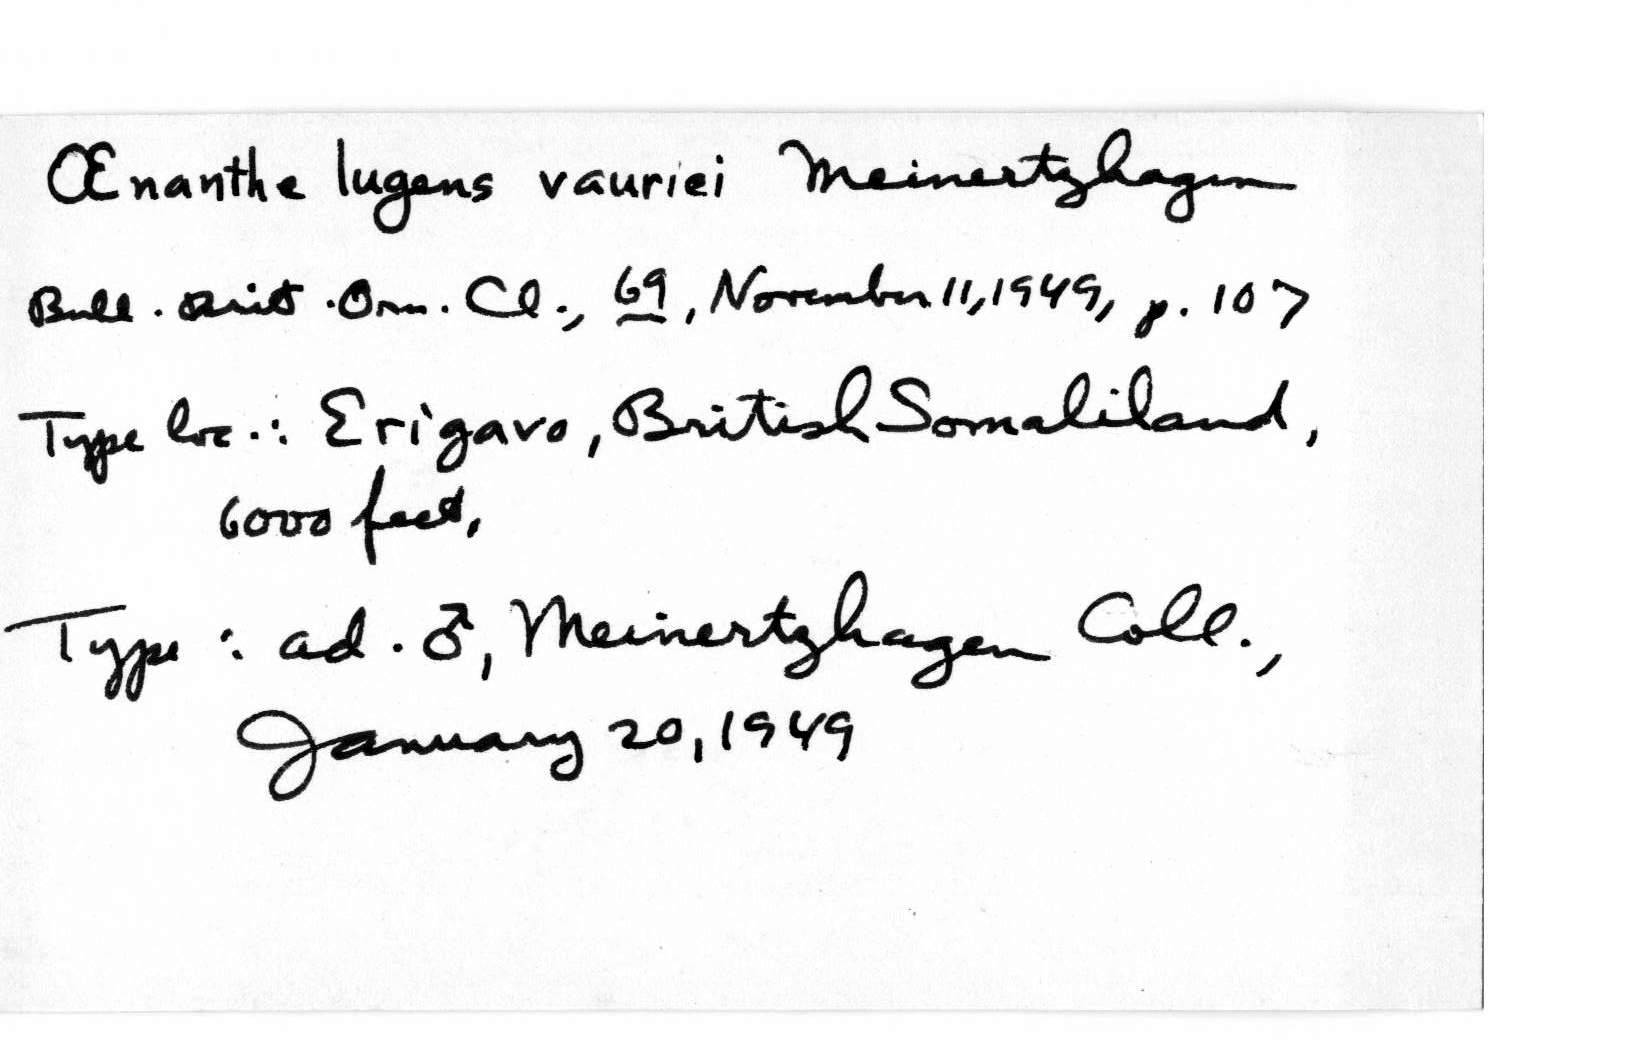 Œnanthe lugens vauriei Meinertzhagen
Bull. Brit. Orn. Cl., 69, November 11, 1949, p. 107
Type loc.: Erigavo, British Somaliland,
6000 feet,
Type: ad. ♂, Meinertzhagen Coll.,
January 20, 1949